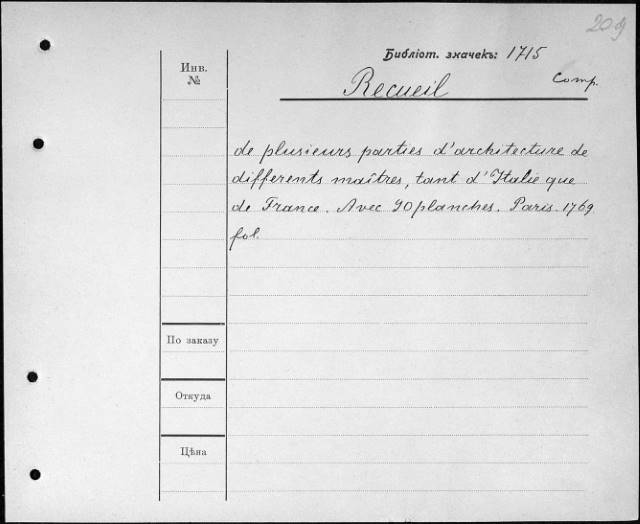 209
Библіот. значекъ: 1715
Comp.
Recueil
Инв.
№
de plusieurs parties d'architecture de
differents maîtres, tant d'Italie que
de France. Avec 90 planches. Paris. 1769
fol.
По заказу
Откуда
Цѣна